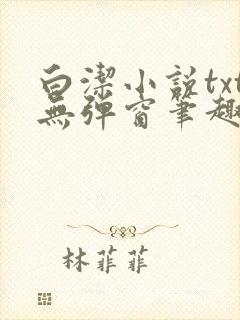 白潔小説txt
無彈窗筆趣
林菲菲